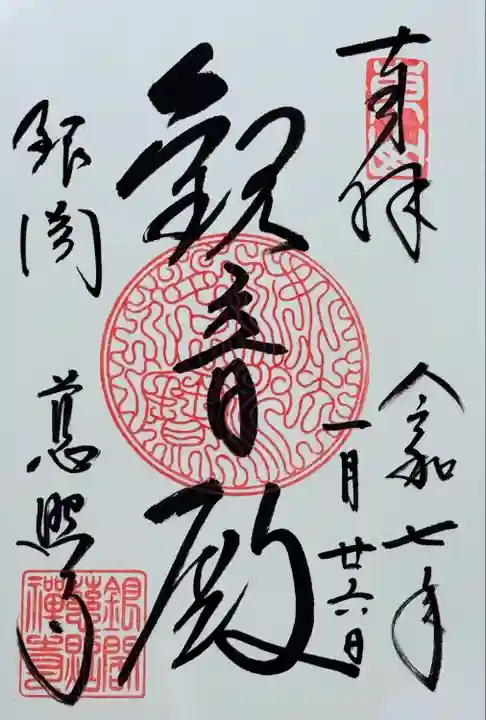 奉拝
令和七年
一月廿六日
観音殿
銀閣
慈照寺
銀閣
慈照
禅寺